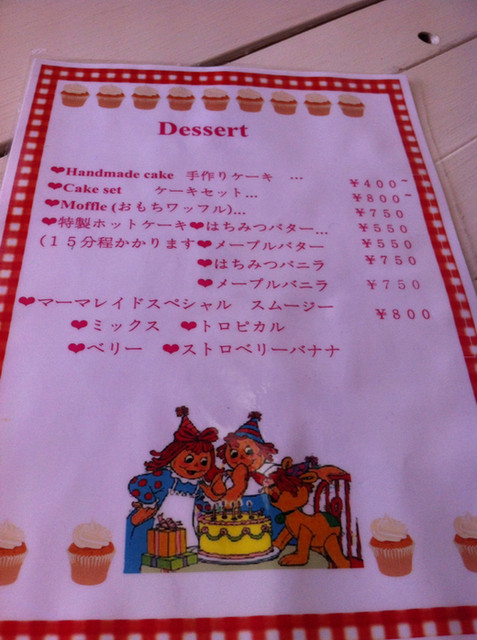 Dessert
❤Handmade cake 手作りケーキ … ¥400~
❤Cake set ケーキセット… ¥800~
❤Moffle (おもちワッフル)… ¥750
❤特製ホットケーキ❤はちみつバター… ¥550
(15分程かかります❤メープルバター ¥550
❤はちみつバニラ ¥750
❤メープルバニラ ¥750
❤マーマレイドスペシャル スムージー ¥800
❤ミックス ❤トロピカル
❤ベリー ❤ストロベリーバナナ